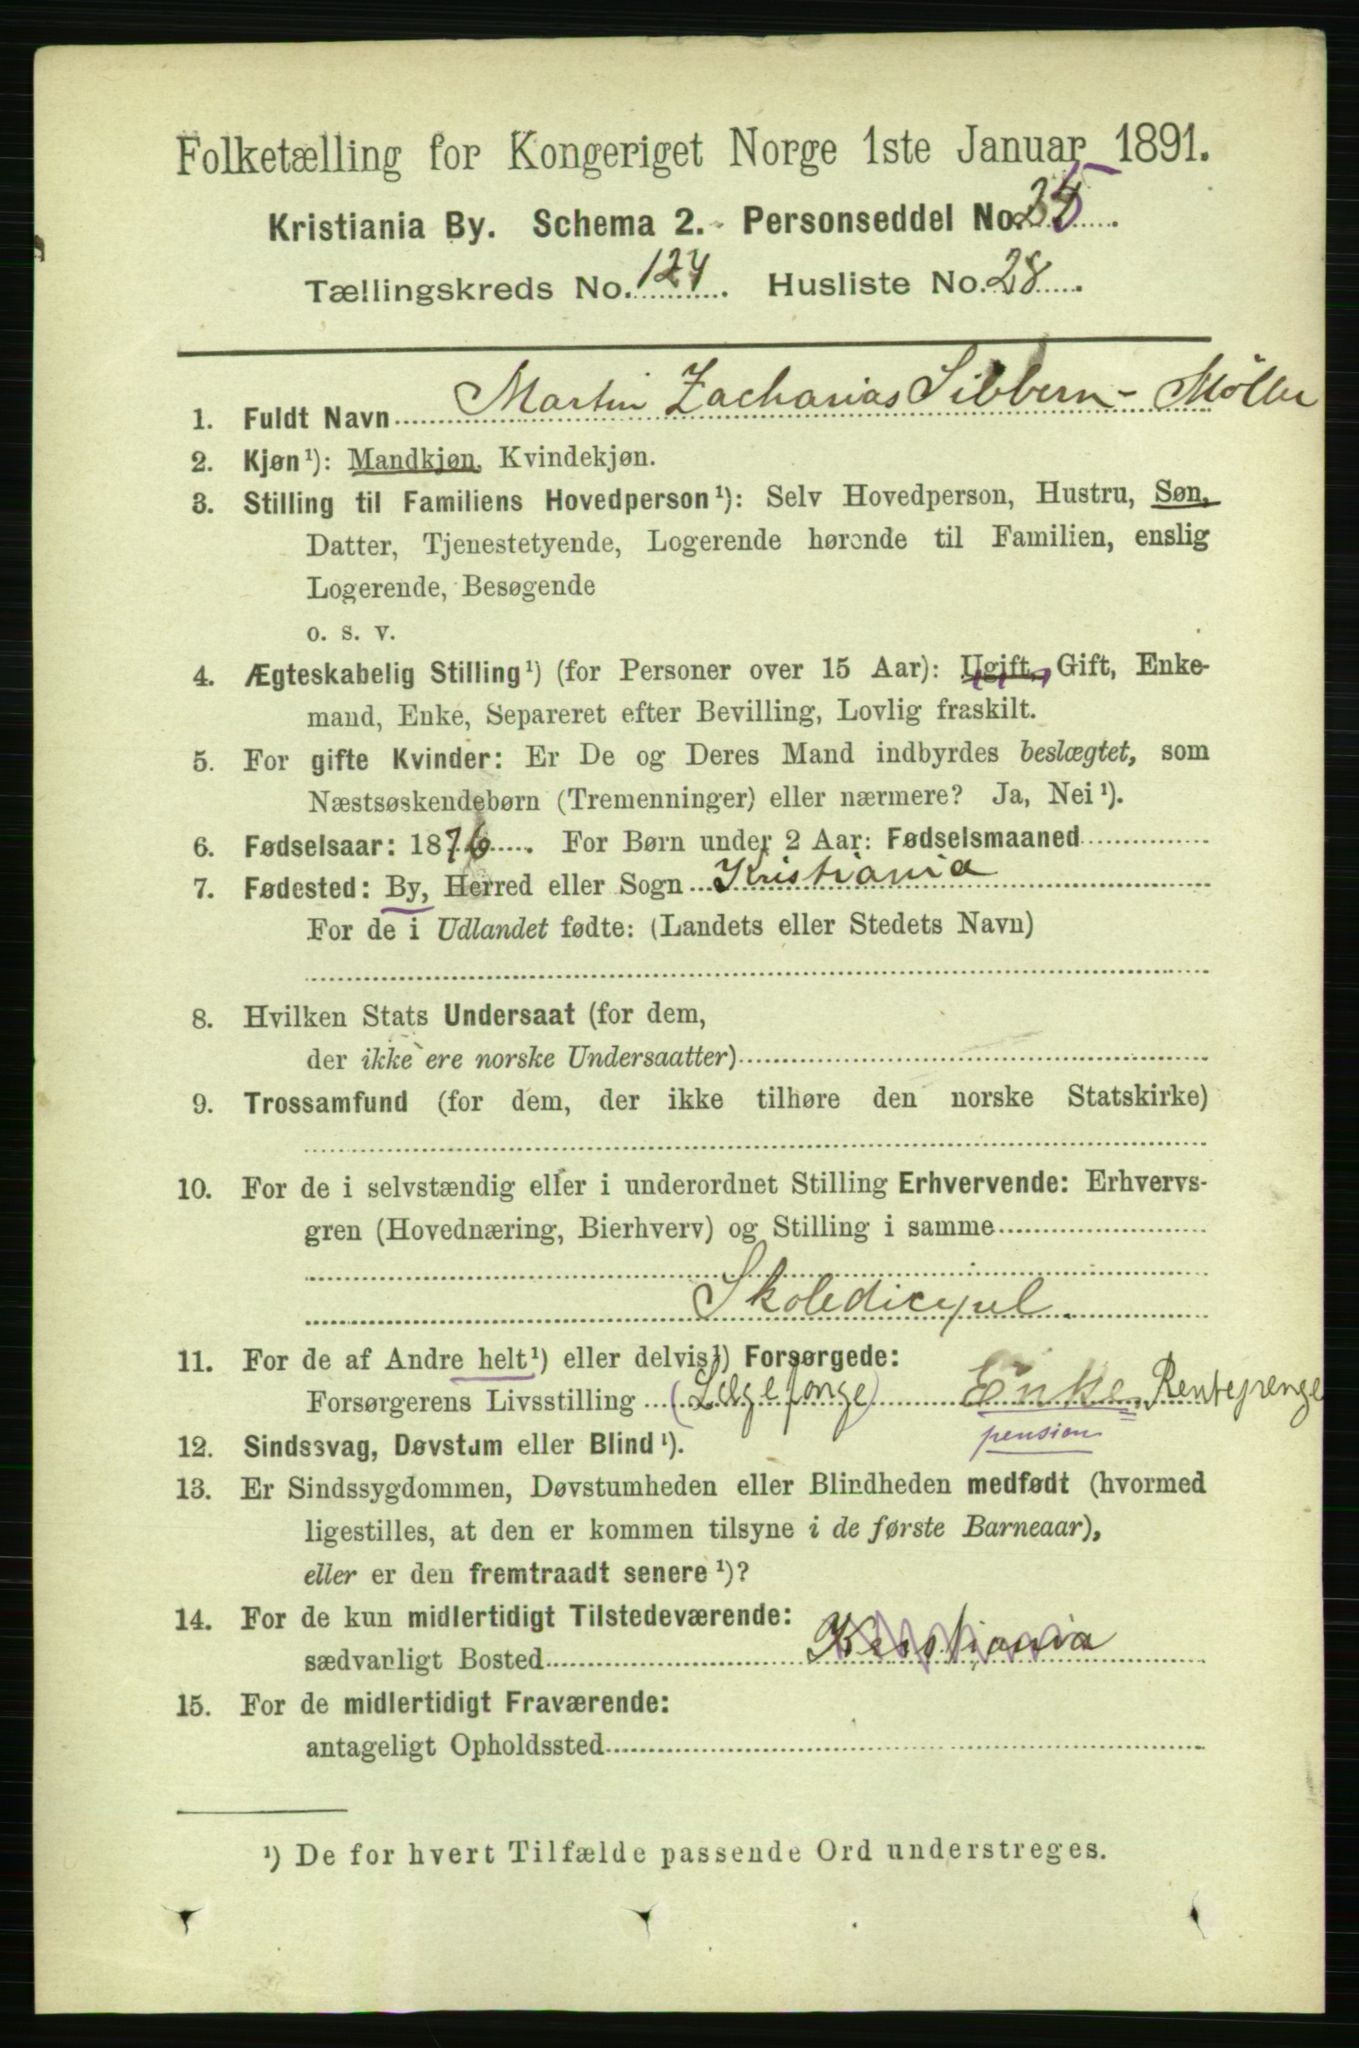 Folketælling for Kongeriget Norge 1ste Januar 1891.
Kristiania By. Schema 2. Personseddel No. 25
Tællingskreds No. 124. Husliste No. 28.
1. Fuldt Navn Martin Zacharias Sibbern-Møller
2. Kjøn¹): Mandkjøn, Kvindekjøn.
3. Stilling til Familiens Hovedperson¹): Selv Hovedperson, Hustru, Søn,
Datter, Tjenestetyende, Logerende hørende til Familien, enslig
Logerende, Besøgende
o. s. v.
4. Ægteskabelig Stilling¹) (for Personer over 15 Aar): Ugift, Gift, Enke-
mand, Enke, Separeret efter Bevilling, Lovlig fraskilt.
5. For gifte Kvinder: Er De og Deres Mand indbyrdes beslægtet, som
Næstsøskendebørn (Tremenninger) eller nærmere? Ja, Nei¹).
6. Fødselsaar: 1876. For Børn under 2 Aar: Fødselsmaaned
7. Fødested: By, Herred eller Sogn Kristiania
For de i Udlandet fødte: (Landets eller Stedets Navn)
8. Hvilken Stats Undersaat (for dem,
der ikke ere norske Undersaatter)
9. Trossamfund (for dem, der ikke tilhøre den norske Statskirke)
10. For de i selvstændig eller i underordnet Stilling Erhvervende: Erhvervs-
gren (Hovednæring, Bierhverv) og Stilling i samme
Skoledicipel.
11. For de af Andre helt¹) eller delvis¹) Forsørgede:
Forsørgerens Livsstilling Enke. Rentepenge
pension
12. Sindssvag, Døvstum eller Blind¹).
13. Er Sindssygdommen, Døvstumheden eller Blindheden medfødt (hvormed
ligestilles, at den er kommen tilsyne i de første Barneaar),
eller er den fremtraadt senere¹)?
14. For de kun midlertidigt Tilstedeværende:
sædvanligt Bosted Kristiania
15. For de midlertidigt Fraværende:
antageligt Opholdssted
¹) De for hvert Tilfælde passende Ord understreges.